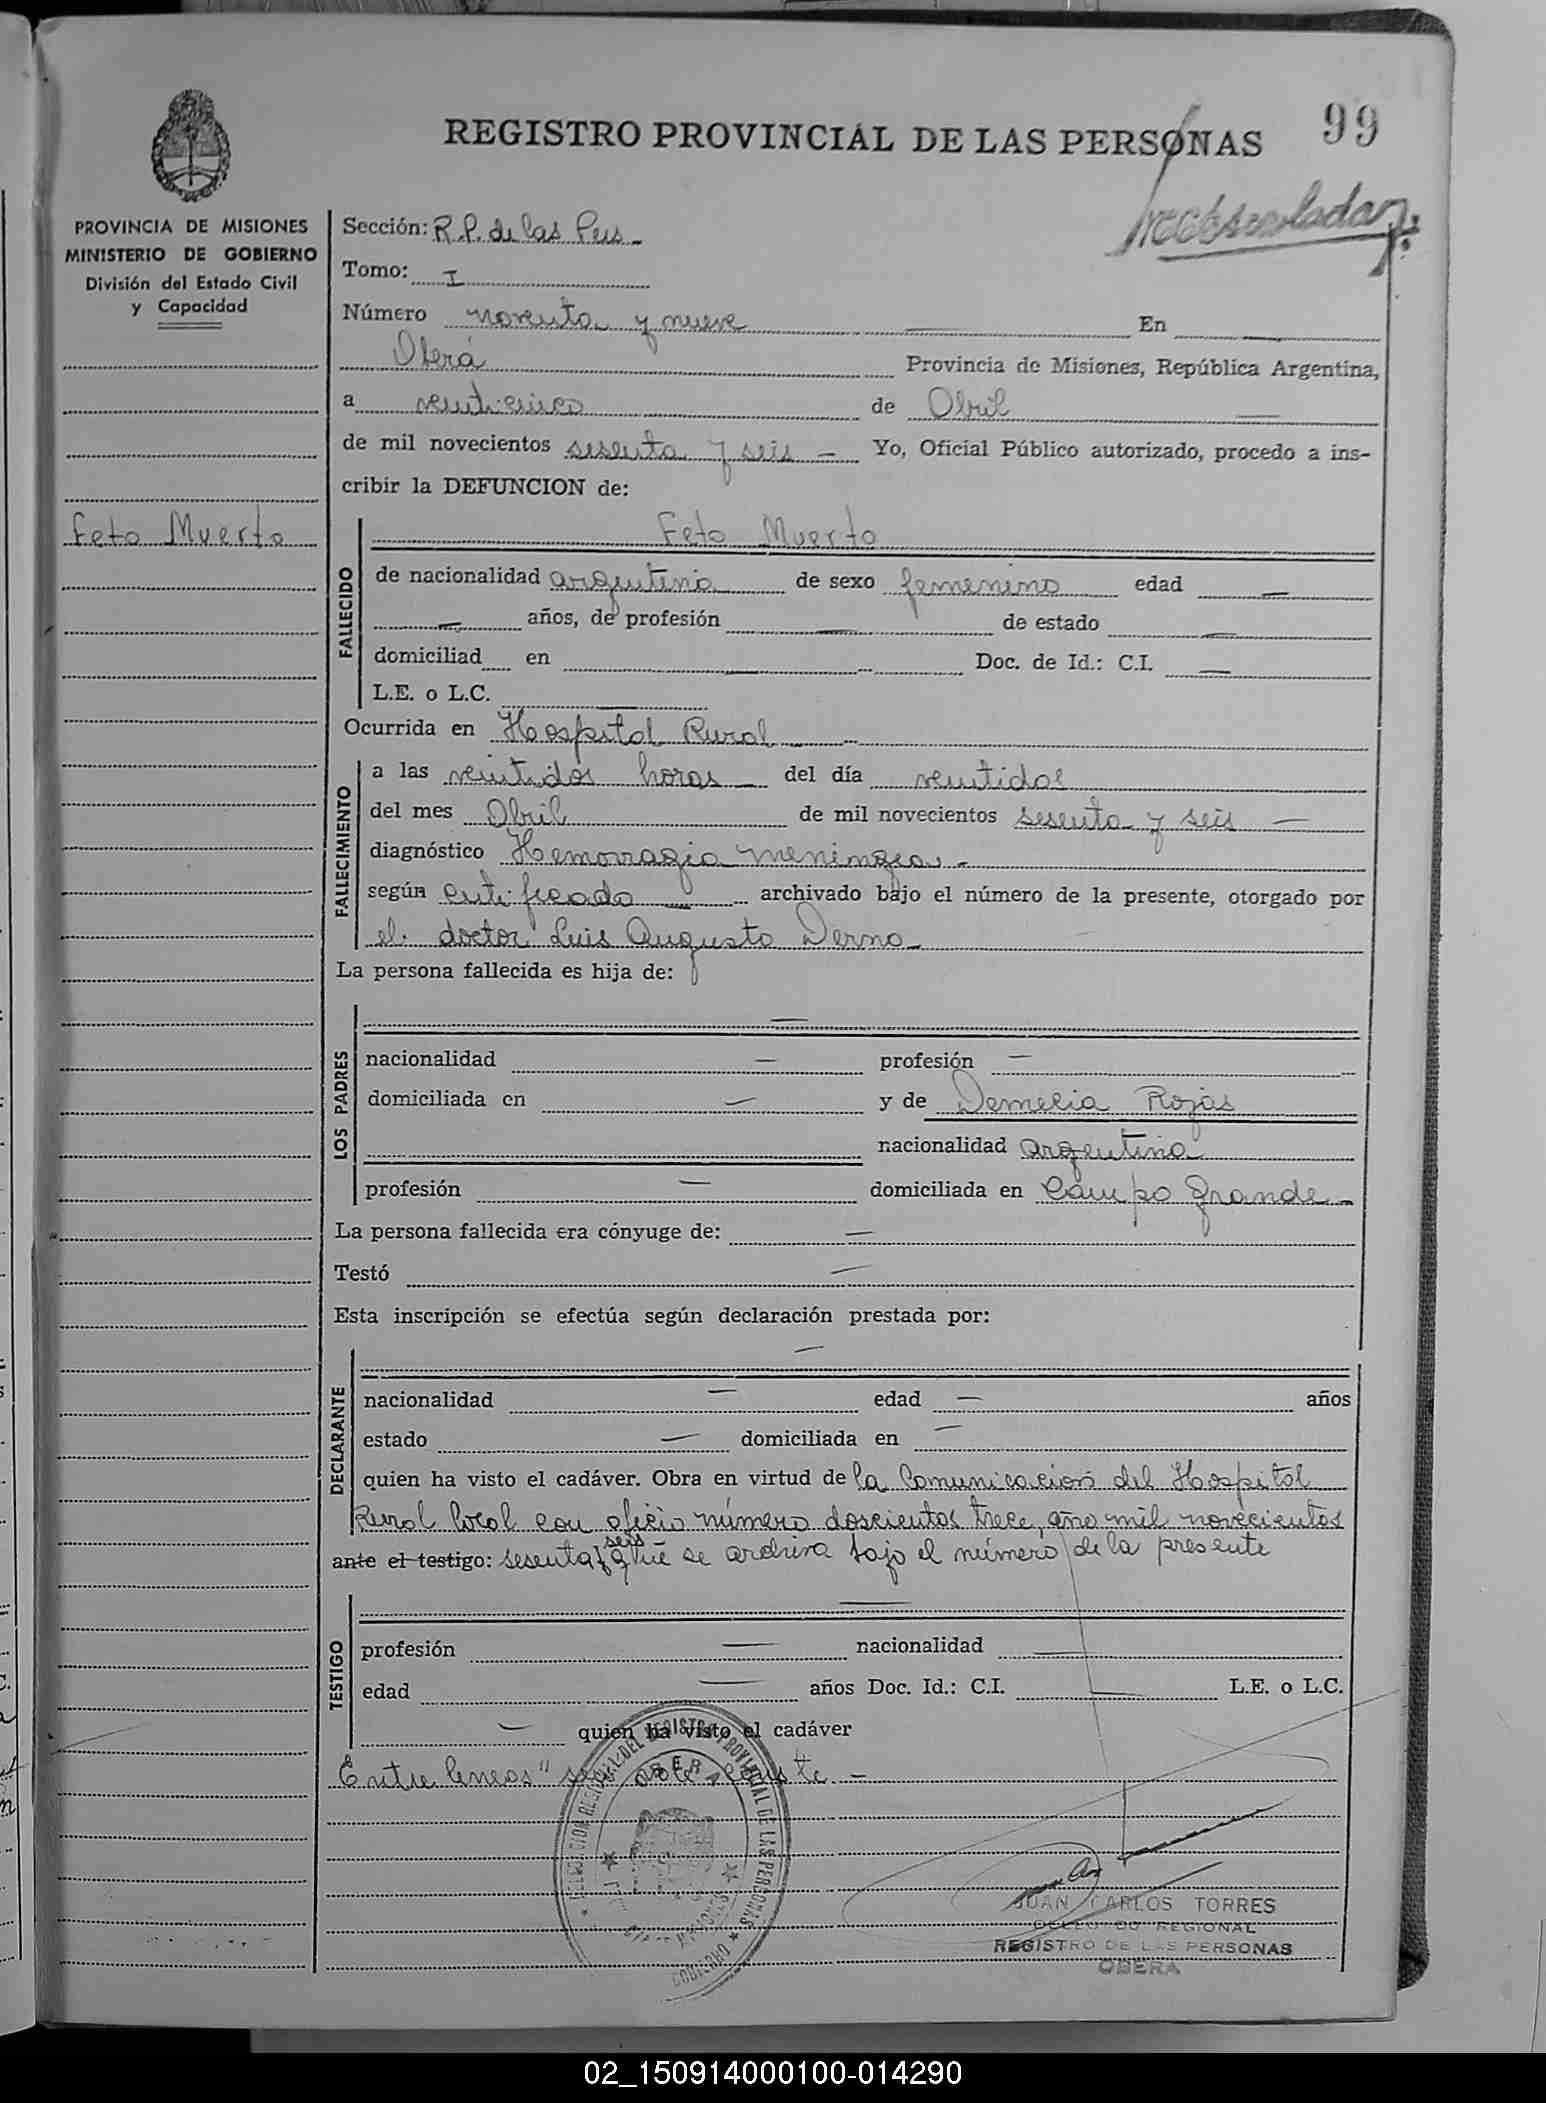 REGISTRO PROVINCIAL DE LAS PERSONAS
99
PROVINCIA DE MISIONES
MINISTERIO DE GOBIERNO
División del Estado Civil
y Capacidad
Feto Muerto
Sección: R.P. de las Pers
Tomo: I
Número noventa y nueve — En —
Oberá Provincia de Misiones, República Argentina,
a veinticinco de Abril —
de mil novecientos sesenta y seis — Yo, Oficial Público autorizado, procedo a ins-
cribir la DEFUNCION de:
FALLECIDO
Feto Muerto
de nacionalidad argentina de sexo femenino edad —
— años, de profesión — de estado —
domiciliad en — Doc. de Id.: C.I. —
L.E. o L.C. —
Ocurrida en Hospital Rural
FALLECIMIENTO
a las veintidos horas — del día veintidos
del mes Abril de mil novecientos sesenta y seis —
diagnóstico Hemorragia meningea -
según certificado — archivado bajo el número de la presente, otorgado por
el doctor Luis Augusto Derna
La persona fallecida es hija de:
LOS PADRES
—
nacionalidad — profesión —
domiciliada en — y de Demelia Rojas
nacionalidad argentina
profesión — domiciliada en Campo Grande -
La persona fallecida era cónyuge de: —
Testó —
Esta inscripción se efectúa según declaración prestada por:
DECLARANTE
—
nacionalidad — edad — años
estado — domiciliada en —
quien ha visto el cadáver. Obra en virtud de la Comunicación del Hospital
Rural local con oficio número doscientos trece, año mil novecientos
seis
ante el testigo: sesenta y que se archiva bajo el número de la presente
TESTIGO
—
profesión — nacionalidad —
edad — años Doc. Id.: C.I. — L.E. o L.C.
— quien ha visto el cadáver
Entre lineas "seis
OBERA
REGISTRO PROVINCIAL DE LAS PERSONAS
JUAN CARLOS TORRES
REGIONAL
REGISTRO DE LAS PERSONAS
OBERA
02_150914000100-014290